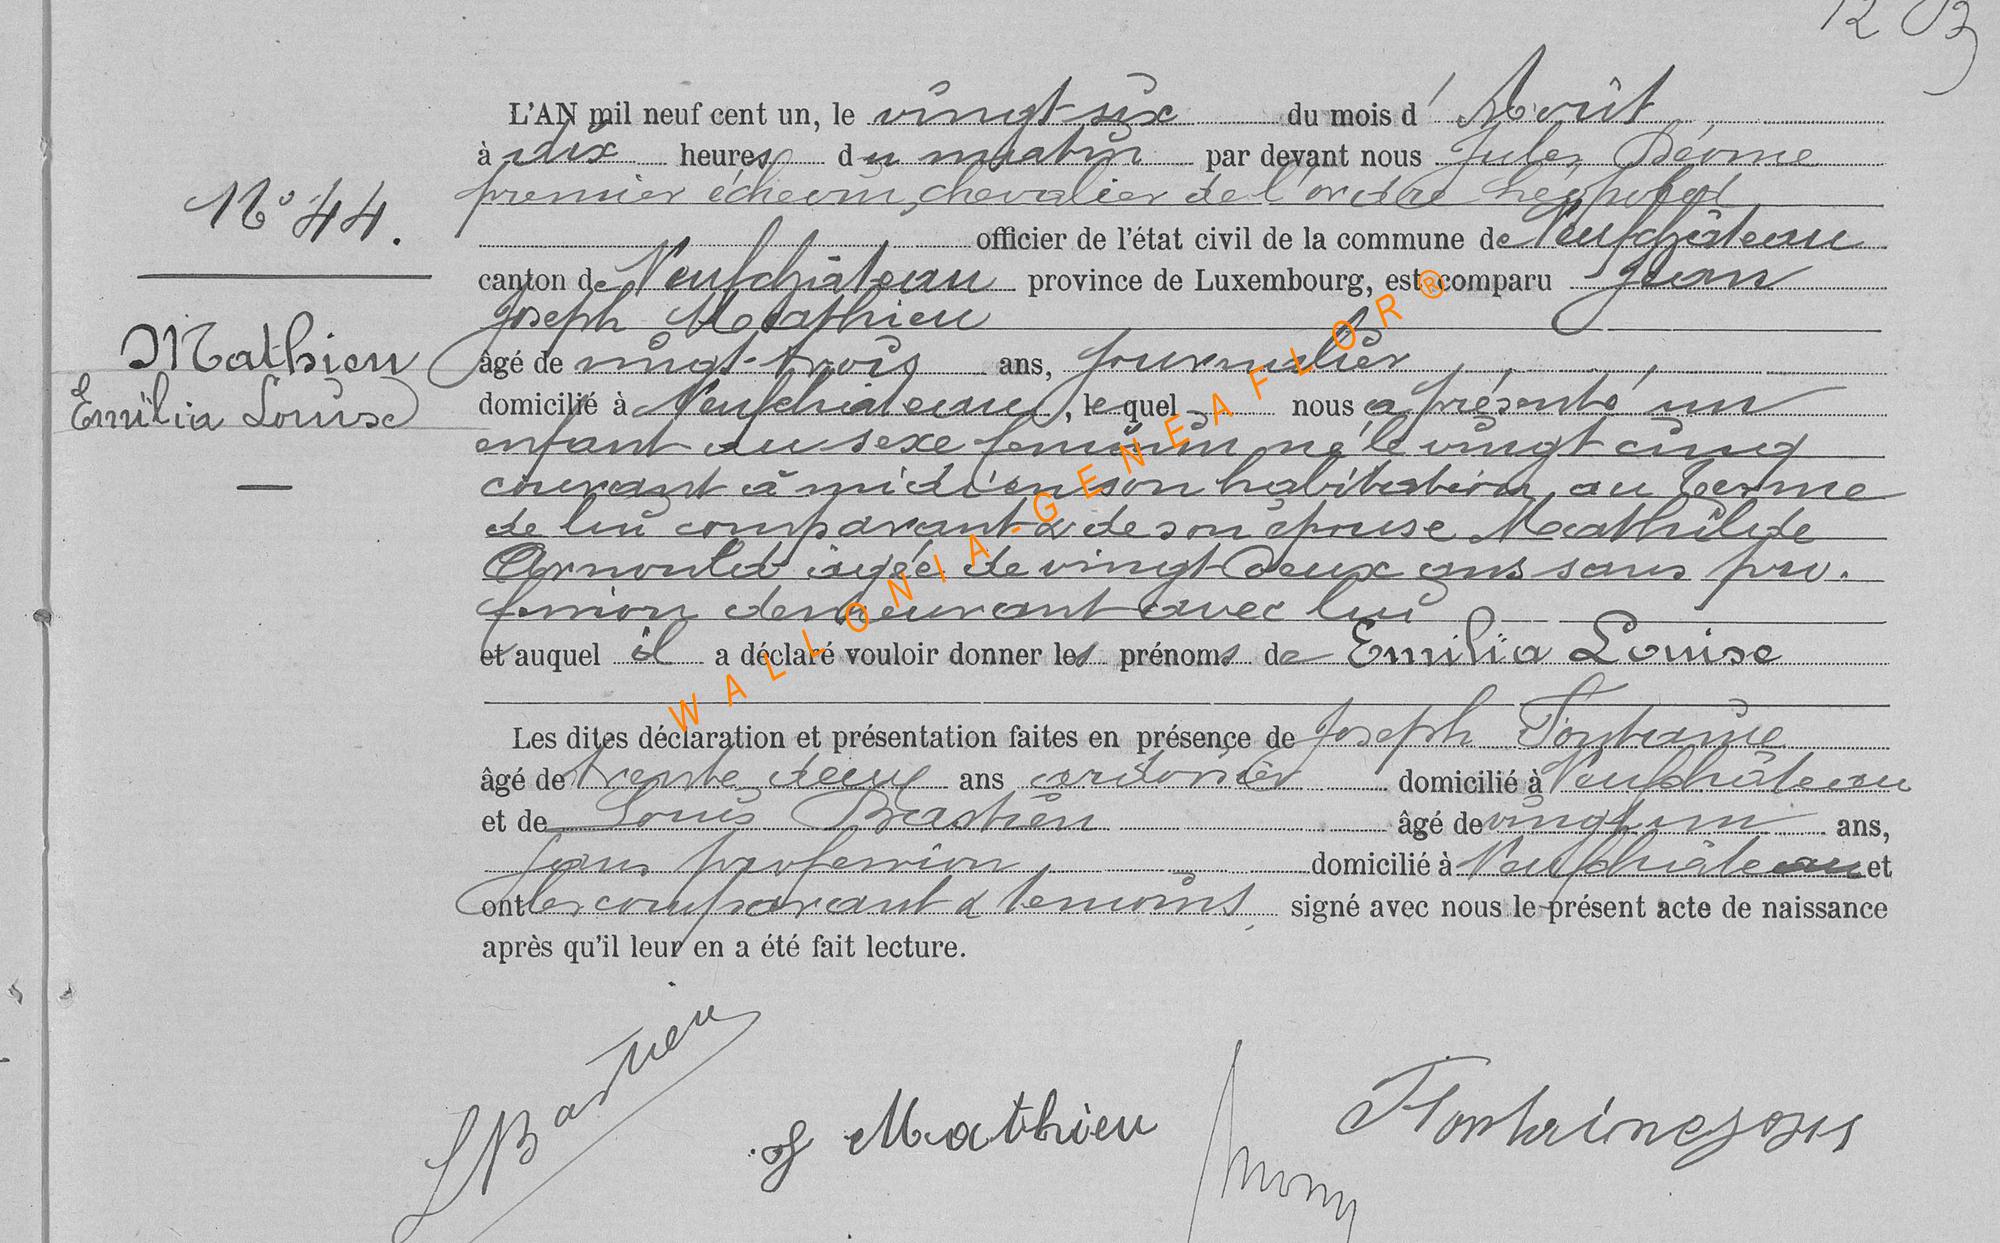 N° 44.
Mathieu
Emilia Louise
L'AN mil neuf cent un, le vingt-six du mois d'Août
à dix heures du matin par devant nous Jules
premier échevin, chevalier de l'ordre Léopold
officier de l'état civil de la commune de Neufchâteau
canton de Neufchâteau province de Luxembourg, est comparu Jean
Joseph Mathieu
âgé de vingt-trois ans, journalier
domicilié à Neufchâteau, lequel nous a présenté un
enfant du sexe feminin né le vingt cinq
courant à midi en son habitation, au Terme
de lui comparant & de son épouse Mathilde
Arnould âgée de vingt deux ans sans pro.
fession demeurant avec lui
et auquel il a déclaré vouloir donner les prénoms de Emilia Louise
Les dites déclaration et présentation faites en présence de Joseph Fontaine
âgé de trente deux ans cordonnier domicilié à Neufchâteau
et de Louis Bastien âgé de vingt un ans,
sans profession domicilié à Neufchâteau et
ont les comparant & temoins signé avec nous le présent acte de naissance
après qu'il leur en a été fait lecture.
L Bastien
J Mathieu
Fontaine
WALLONIA-GENEAFLOR®